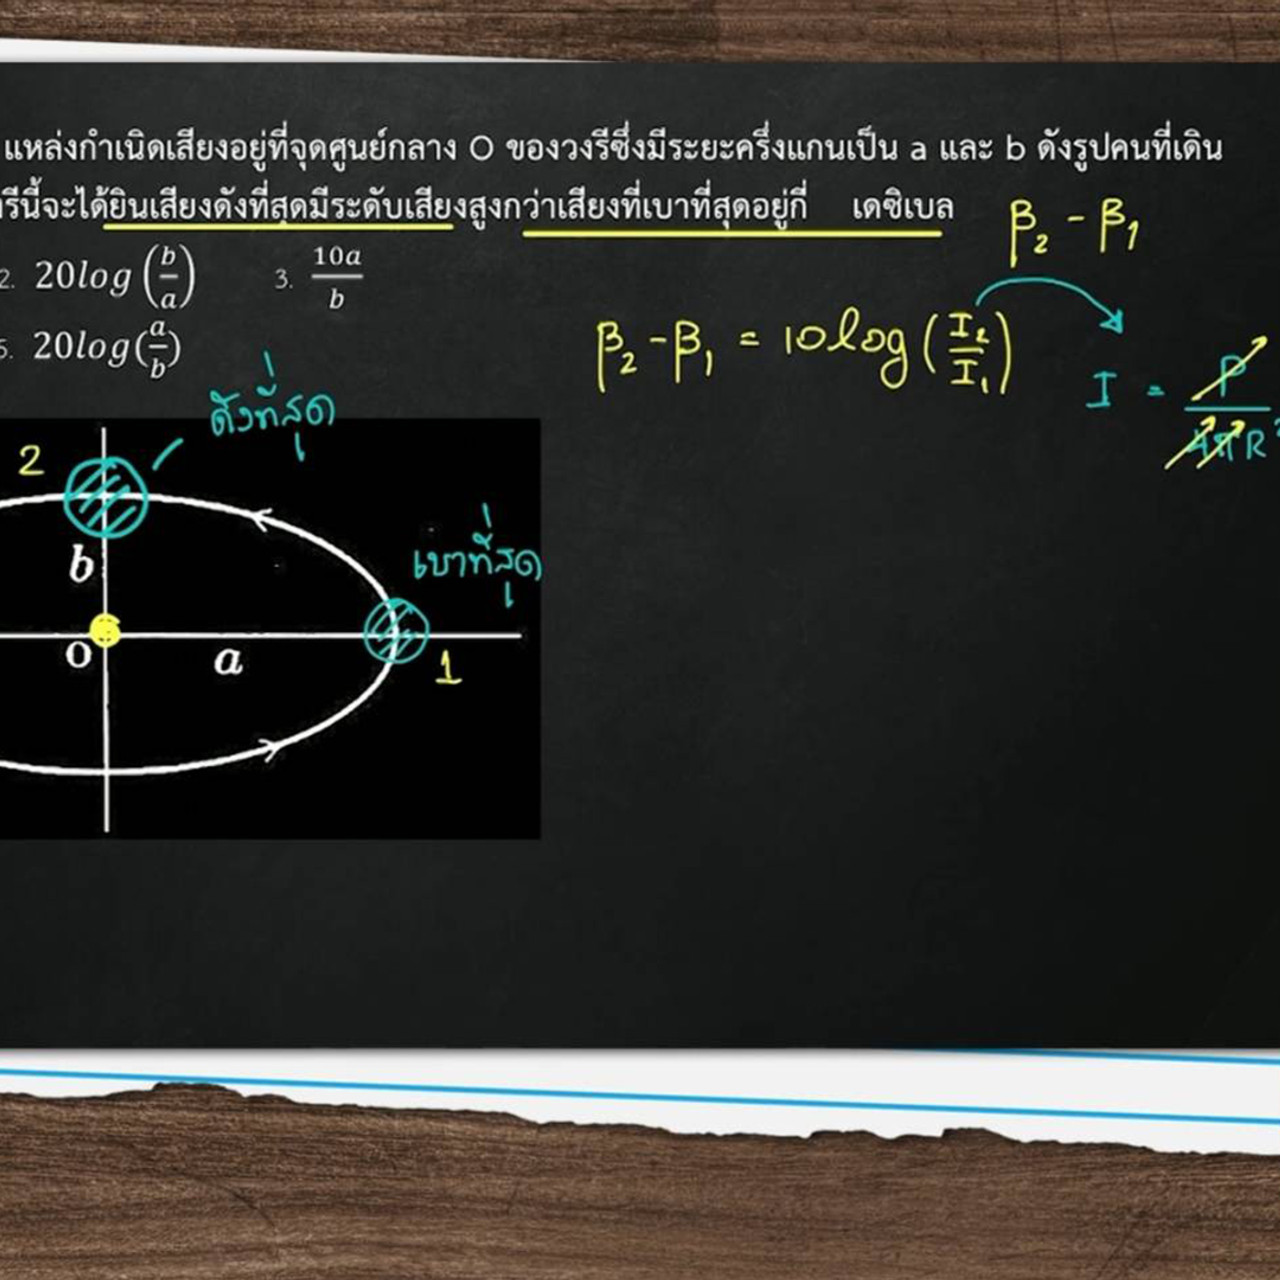 แหล่งกำเนิดเสียงอยู่ที่จุดศูนย์กลาง O ของวงรีซึ่งมีระยะครึ่งแกนเป็น a และ b ดังรูปคนที่เดิน
รีนี้จะได้ยินเสียงดังที่สุดมีระดับเสียงสูงกว่าเสียงที่เบาที่สุดอยู่กี่ เดซิเบล
β₂ - β₁
2. 20log (b/a) 3. 10a/b
5. 20log(a/b)
β₂ - β₁ = 10log (I₂/I₁)
I = P/4πR²
ดังที่สุด
2
b
เบาที่สุด
O a 1